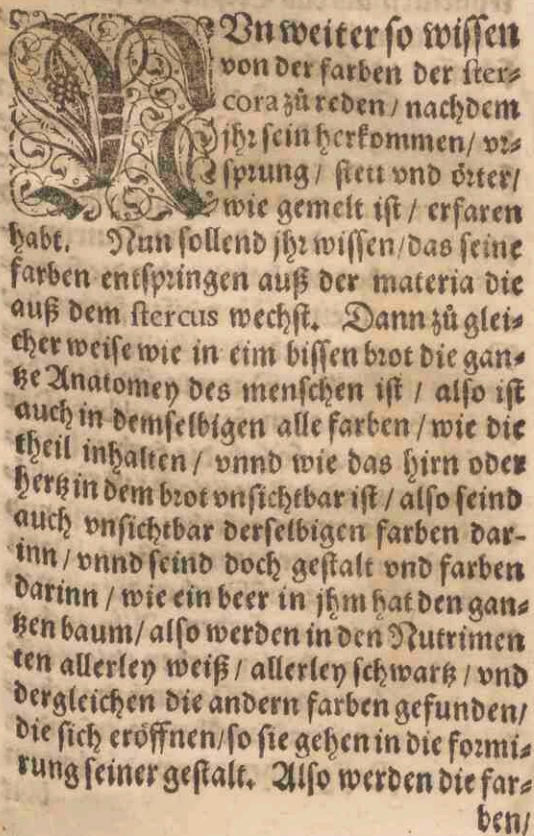 NUn weiter so wissen
von der farben der ster⸗
cora zů reden / nachdem
jhr sein herkommen / vr⸗
sprung / stett vnd örter /
wie gemelt ist / erfaren
habt. Nun sollend jhr wissen / das seine
farben entspringen auß der materia die
auß dem stercus wechst. Dann zů glei⸗
cher weise wie in eim bissen brot die gan⸗
tze Anatomey des menschen ist / also ist
auch in demselbigen alle farben / wie die
theil inhalten / vnnd wie das hirn oder
hertz in dem brot vnsichtbar ist / also seind
auch vnsichtbar derselbigen farben dar⸗
inn / vnnd seind doch gestalt vnd farben
darinn / wie ein beer in jhm hat den gan⸗
tzen baum / also werden in den Nutrimen
ten allerley weiß / allerley schwartz / vnd
dergleichen die andern farben gefunden /
die sich eröffnen / so sie gehen in die formi⸗
rung seiner gestalt. Also werden die far⸗
ben /